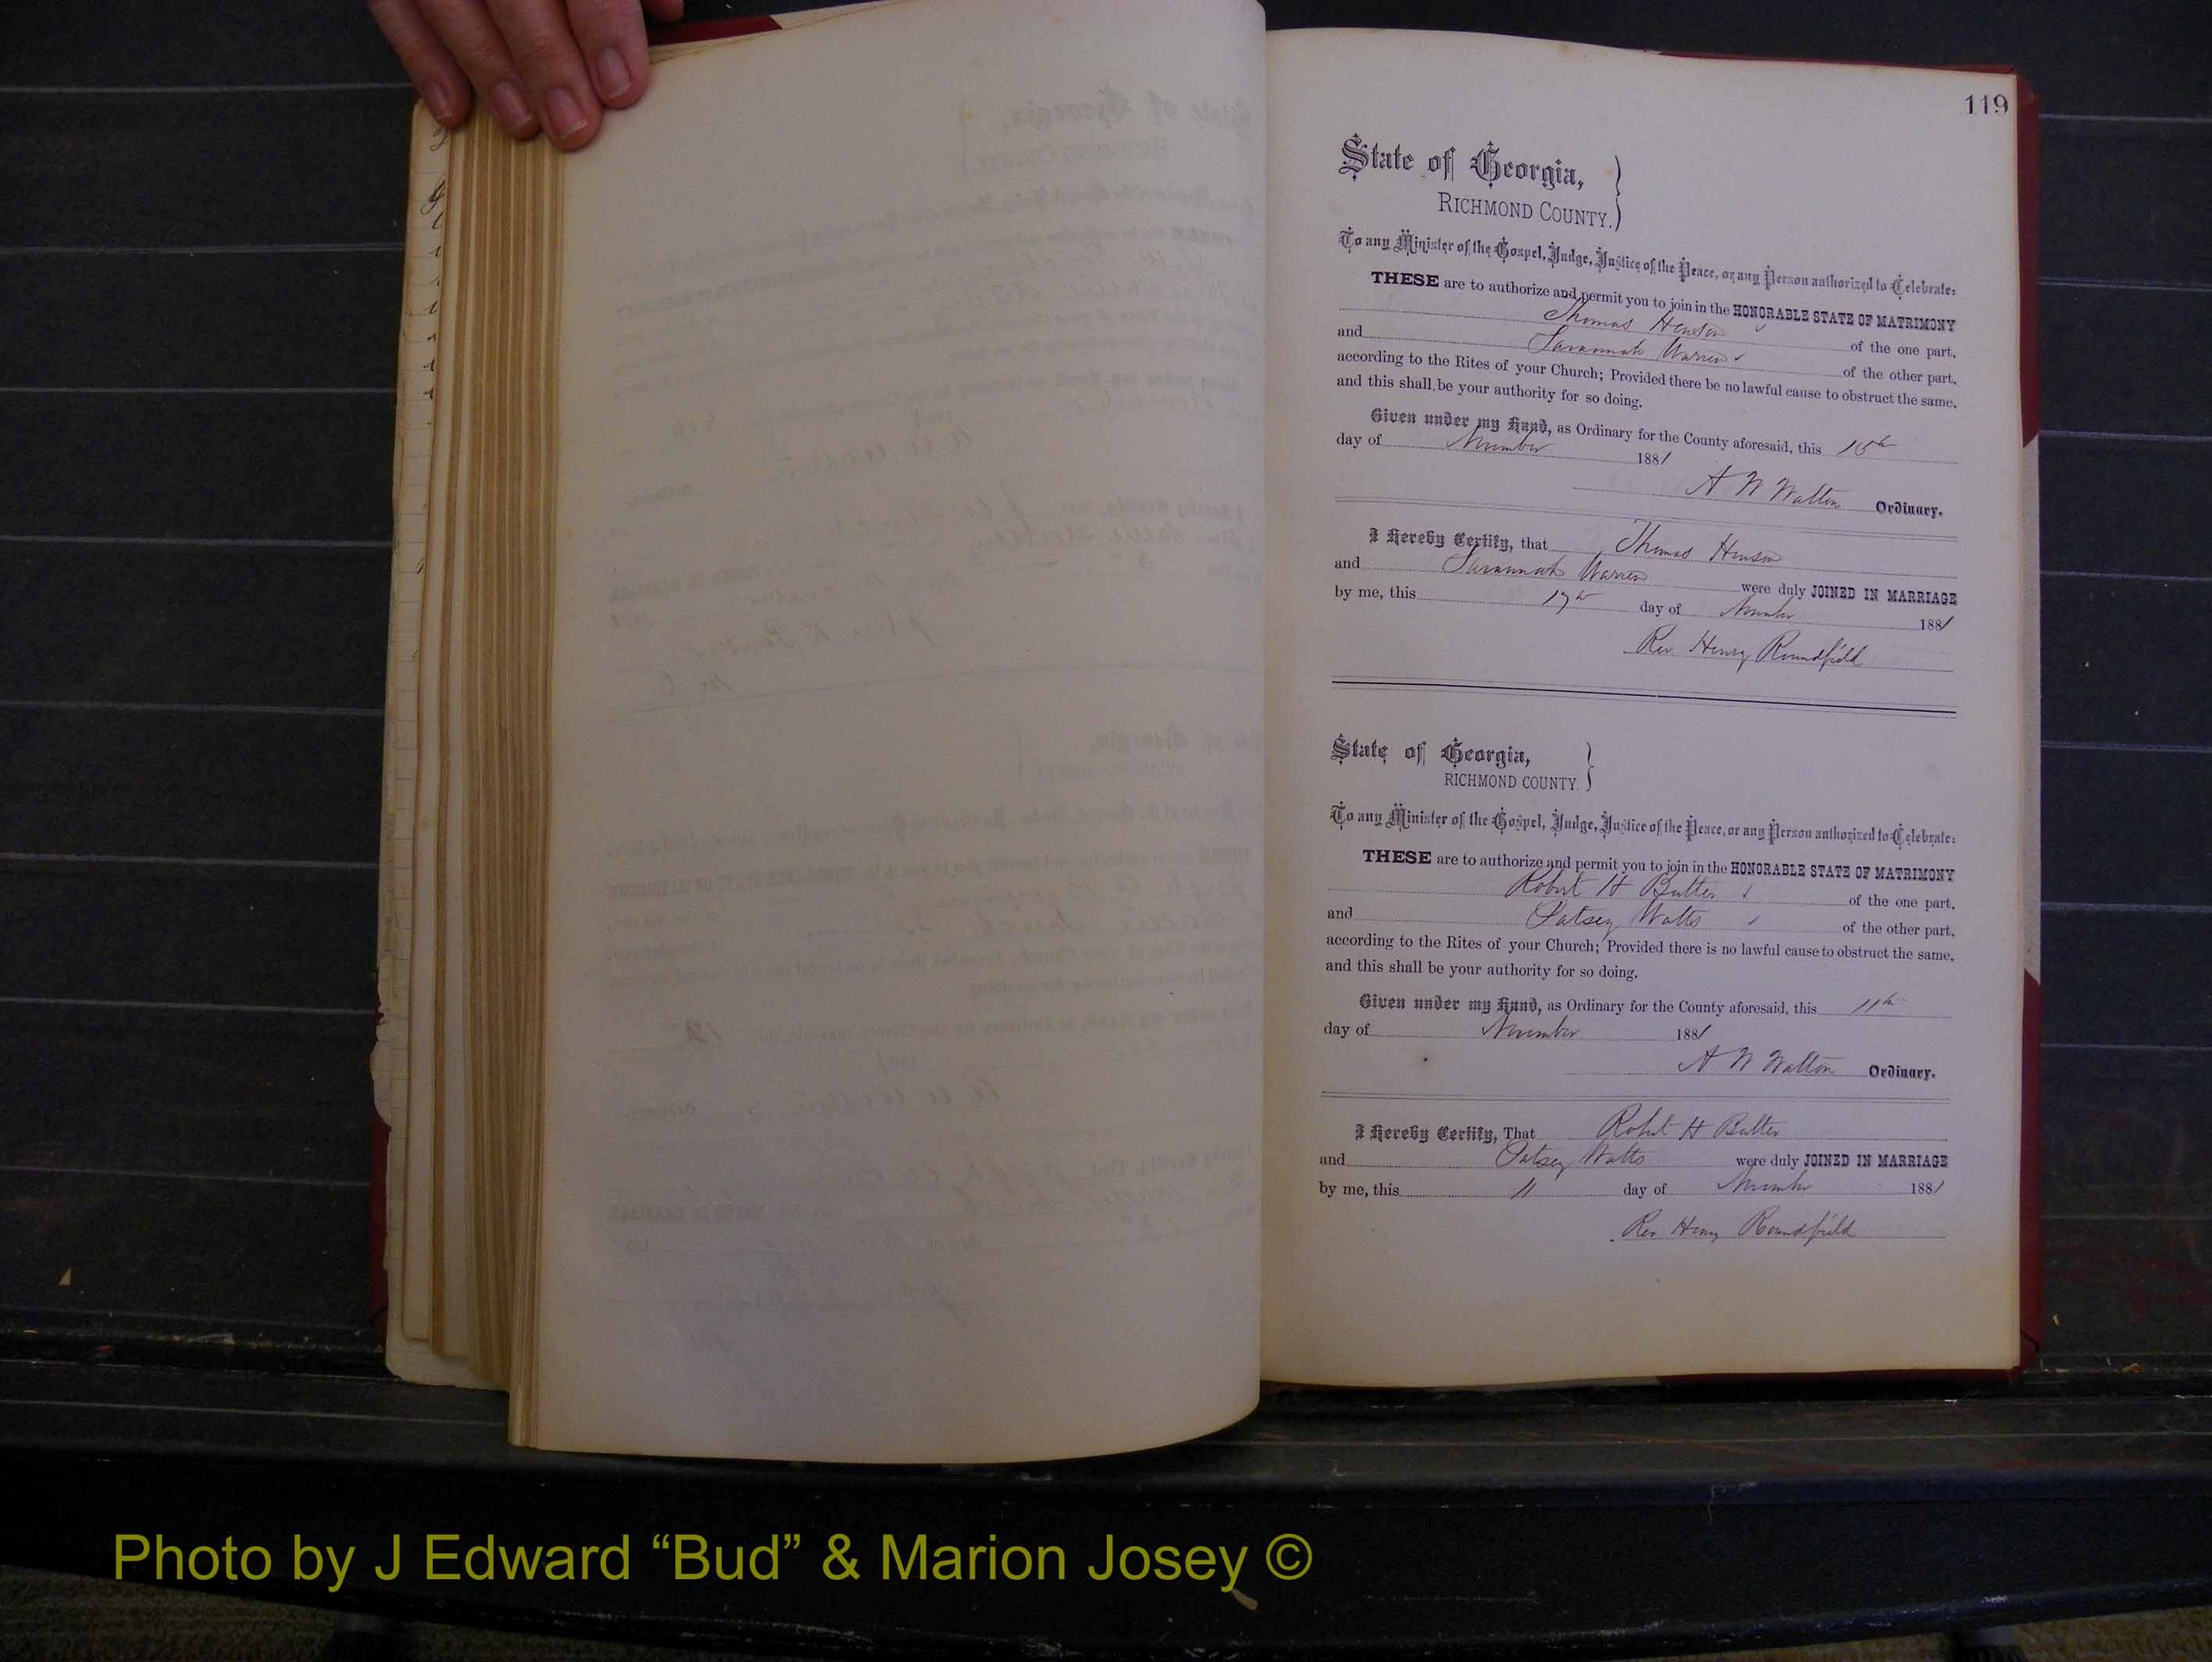 119
State of Georgia,
RICHMOND COUNTY.
To any Minister of the Gospel, Judge, Justice of the Peace, or any Person authorized to Celebrate:
THESE are to authorize and permit you to join in the HONORABLE STATE OF MATRIMONY
Thomas Henson of the one part,
and Savannah Warren of the other part,
according to the Rites of your Church; Provided there be no lawful cause to obstruct the same,
and this shall be your authority for so doing.
Given under my Hand, as Ordinary for the County aforesaid, this 15th
day of November 1881
A W Walton Ordinary.
I Hereby Certify, that Thomas Henson
and Savannah Warren were duly JOINED IN MARRIAGE
by me, this 17th day of November 1881
Rev Henry Roundfield
State of Georgia,
RICHMOND COUNTY.
To any Minister of the Gospel, Judge, Justice of the Peace, or any Person authorized to Celebrate:
THESE are to authorize and permit you to join in the HONORABLE STATE OF MATRIMONY
Robert H Butler of the one part,
and Patsey Watts of the other part,
according to the Rites of your Church; Provided there is no lawful cause to obstruct the same,
and this shall be your authority for so doing.
Given under my Hand, as Ordinary for the County aforesaid, this 11th
day of November 1881
A W Walton Ordinary.
I Hereby Certify, That Robert H Butler
and Patsey Watts were duly JOINED IN MARRIAGE
by me, this 11 day of November 1881
Rev Henry Roundfield
Photo by J Edward “Bud” & Marion Josey ©